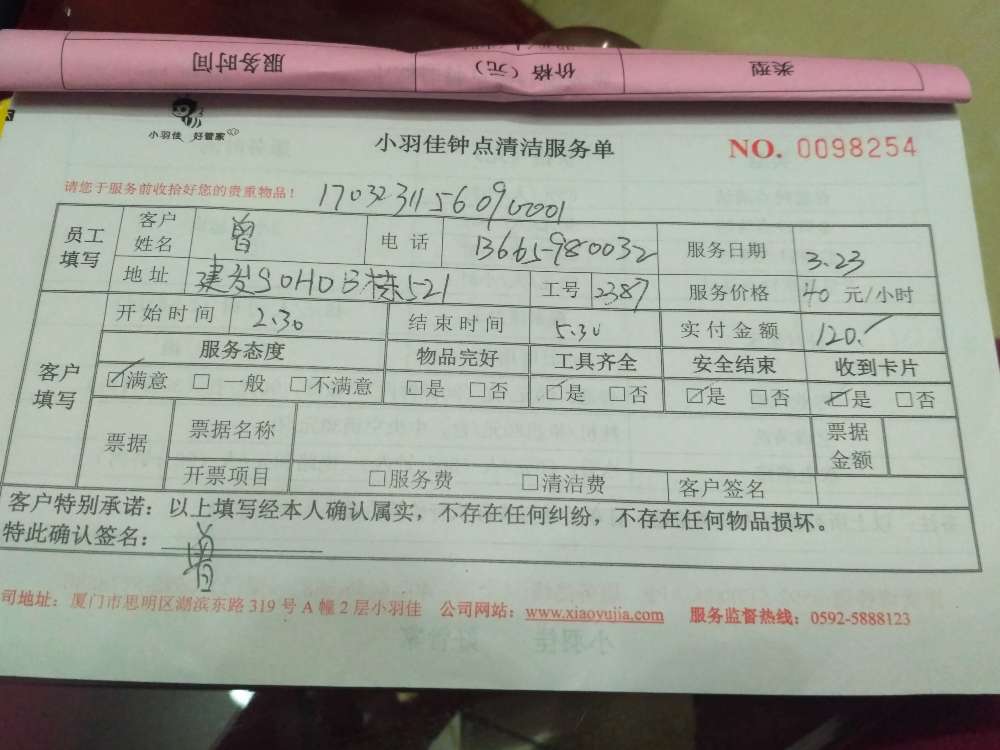 服务时间 价格（元） 类型
小羽佳 好管家
小羽佳钟点清洁服务单 NO. 0098254
请您于服务前收拾好您的贵重物品！ 1703231156090001
员工填写 客户姓名 曾 电话 13665980032 服务日期 3.23
地址 建发SOHO B栋521 工号 2387 服务价格 40 元/小时
客户填写 开始时间 2.30 结束时间 5.30 实付金额 120.
服务态度 物品完好 工具齐全 安全结束 收到卡片
☑满意 □一般 □不满意 ☑是 □否 ☑是 □否 ☑是 □否 ☑是 □否
票据 票据名称 票据金额
开票项目 □服务费 □清洁费 客户签名
客户特别承诺：以上填写经本人确认属实，不存在任何纠纷，不存在任何物品损坏。
特此确认签名：曾
司地址：厦门市思明区湖滨东路 319 号 A 幢 2 层小羽佳 公司网站：www.xiaoyujia.com 服务监督热线：0592-5888123